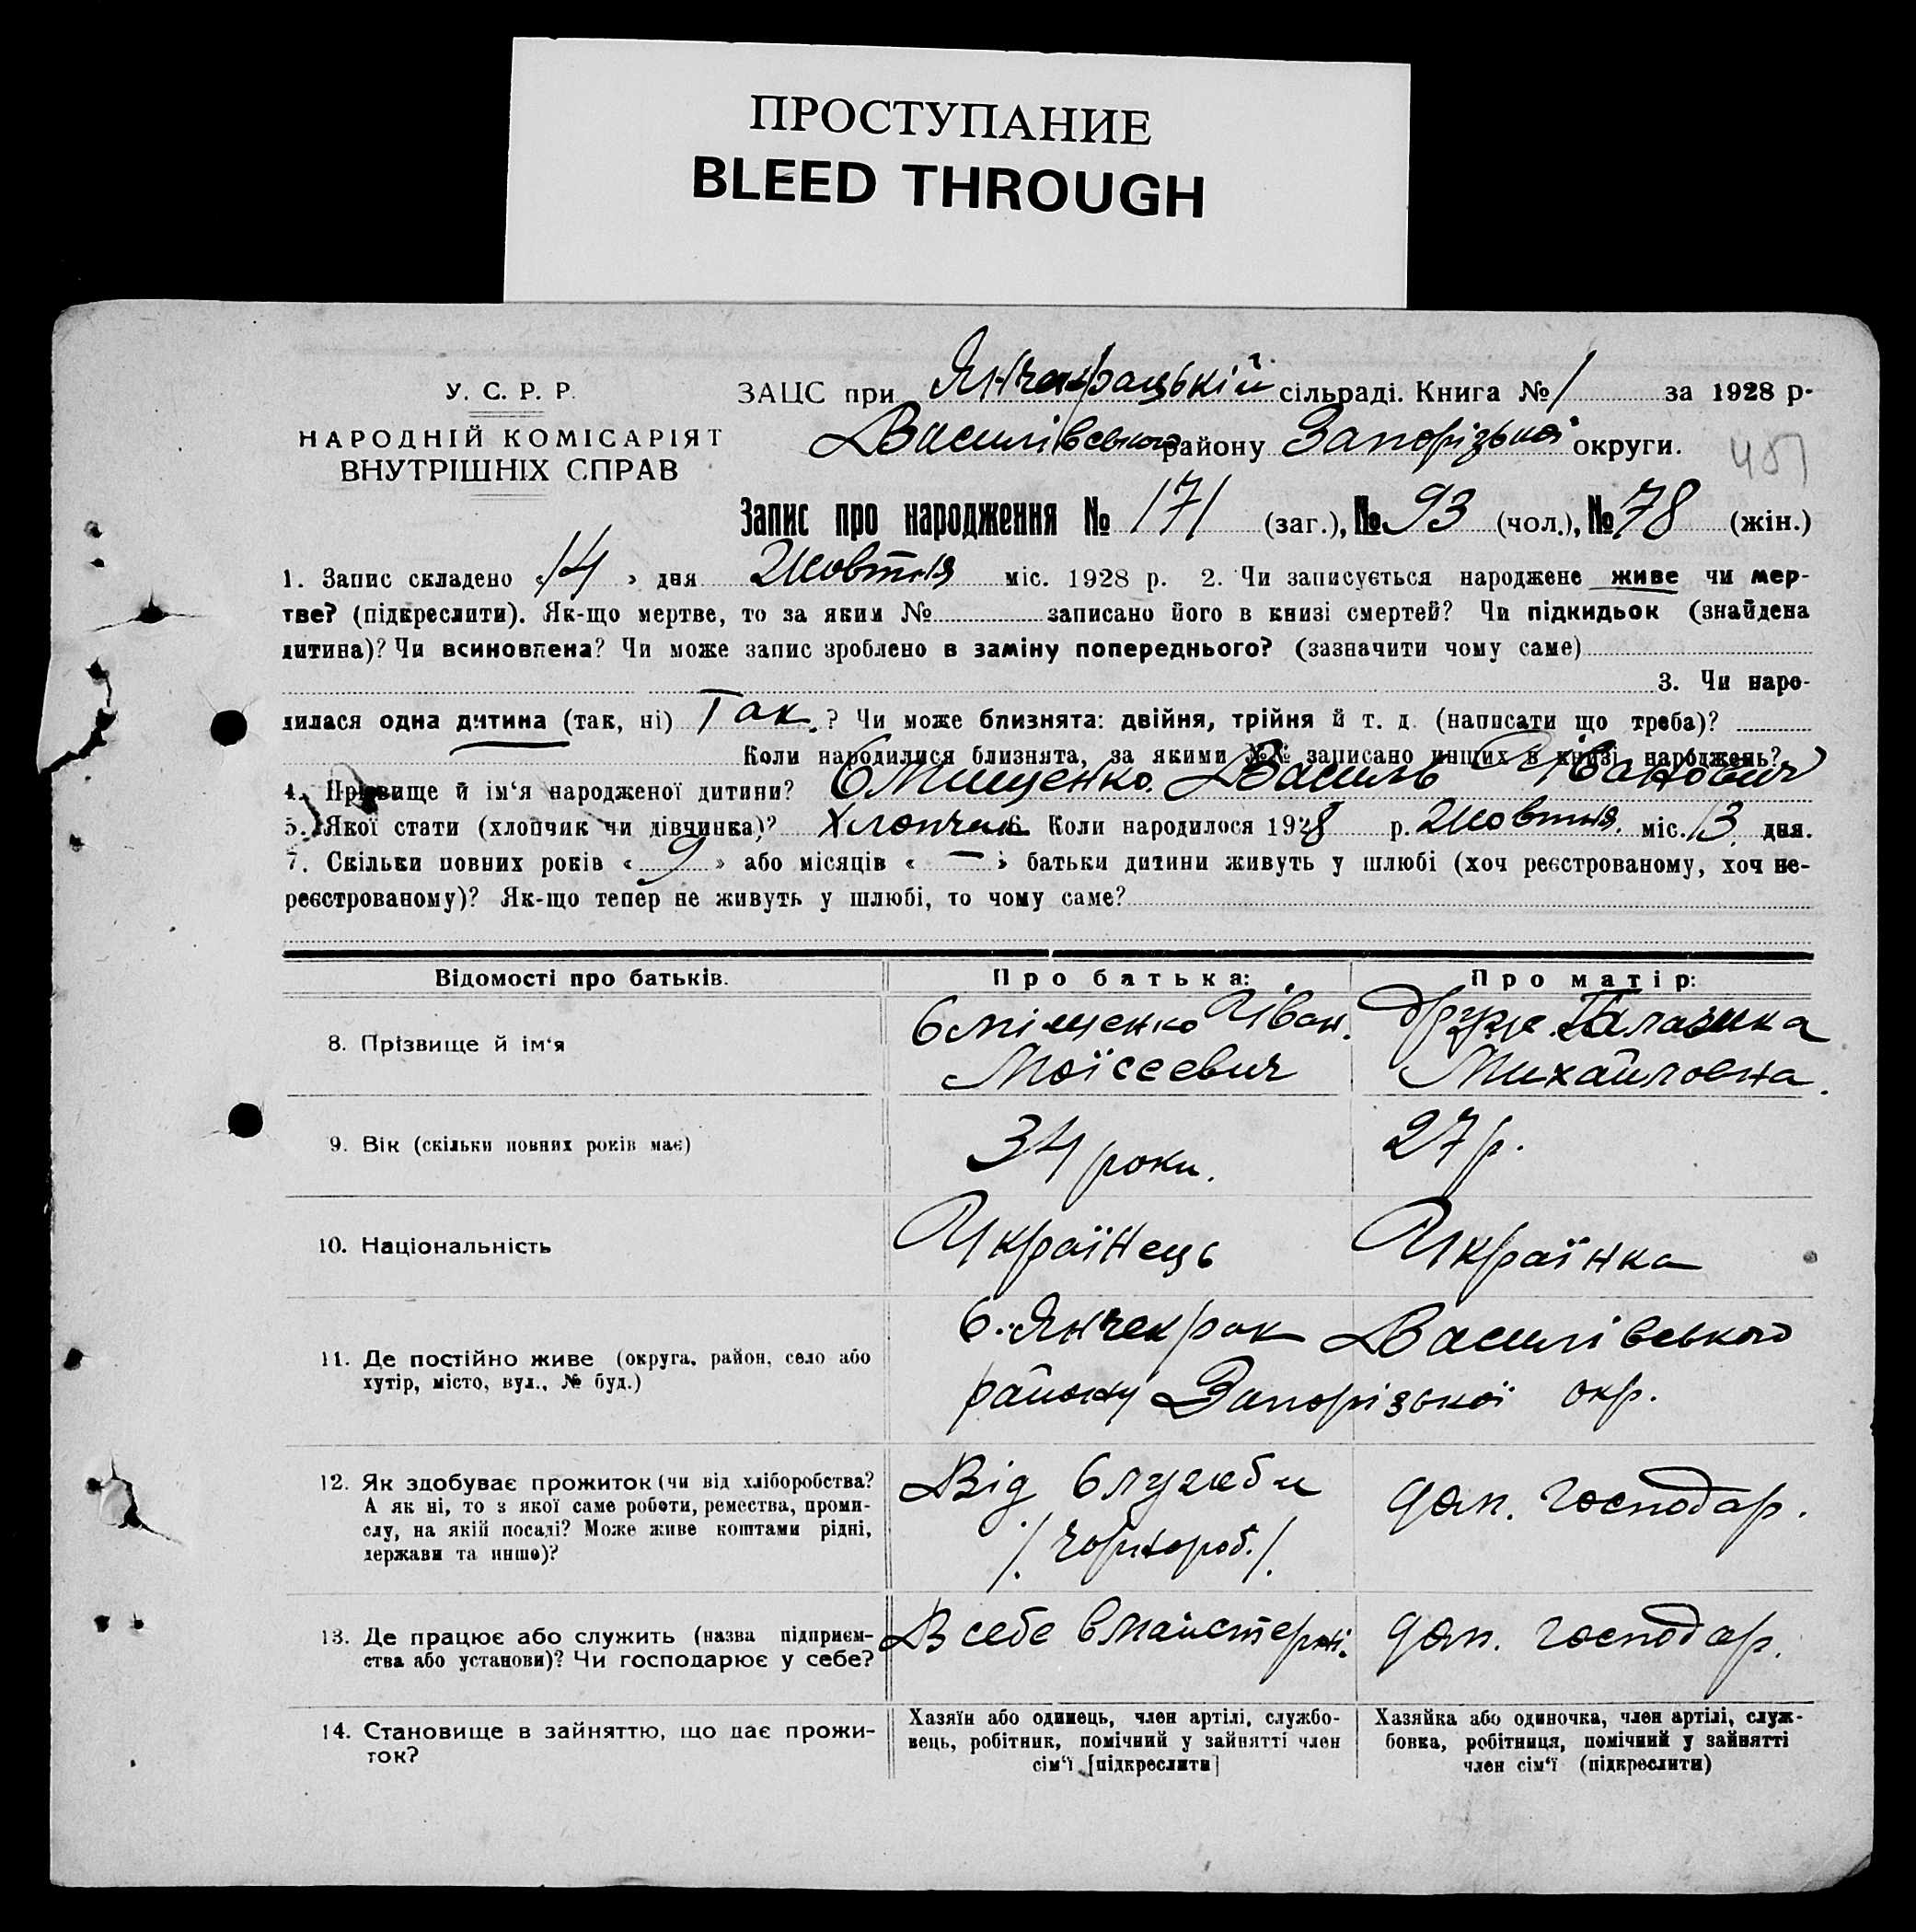 ПРОСТУПАНИЕ
BLEED THROUGH
У. С. Р. Р.
НАРОДНІЙ КОМІСАРІЯТ
ВНУТРІШНІХ СПРАВ
ЗАЦС при Янчекрацькій сільраді. Книга № 1 за 1928 р.
Василівського району Запорізької округи.
Запис про народження № 171 (заг.), № 93 (чол.), № 78 (жін.)
1. Запис складено «14» дня Жовтня міс. 1928 р. 2. Чи записується народжене живе чи мер-
тве? (підкреслити). Як-що мертве, то за яким № записано його в книзі смертей? Чи підкидьок (знайдена
дитина)? Чи всиновлена? Чи може запис зроблено в заміну попереднього? (зазначити чому саме)
3. Чи наро-
дилася одна дитина (так, ні) Так.? Чи може близнята: двійня, трійня й т. д. (написати що треба)?
Коли народилися близнята, за якими №№ записано инших в книзі народжень?
4. Прізвище й ім'я народженої дитини? Смищенко Василь Иванович
5. Якої стати (хлопчик чи дівчинка)? Хлопчик 6. Коли народилося 1928 р. Жовтня міс. 13 дня.
7. Скільки повних років «9» або місяців «—» батьки дитини живуть у шлюбі (хоч реєстрованому, хоч не-
реєстрованому)? Як-що тепер не живуть у шлюбі, то чому саме?
Відомості про батьків.
Про батька:
Про матір:
8. Прізвище й ім'я
Сміщенко Иван.
Моїсеєвич
Михайловна.
9. Вік (скільки повних років має)
34 роки.
27 р.
10. Національність
Українець
Українка
11. Де постійно живе (округа, район, село або
хутір, місто, вул., № буд.)
С. Янчекрак Василівського
району Запорізької окр.
12. Як здобуває прожиток (чи від хліборобства?
А як ні, то з якої саме роботи, ремества, проми-
слу, на якій посаді? Може живе коштами рідні,
держави та инше)?
Від Служби
/Чорнороб./
господар.
13. Де працює або служить (назва підприєм-
ства або установи)? Чи господарює у себе?
В себе в майстерні.
господар.
14. Становище в зайняттю, що дає прожи-
ток?
Хазяїн або одинець, член артілі, службо-
вець, робітник, помічний у зайнятті член
сім'ї [підкреслити]
Хазяйка або одиночка, член артілі, служ-
бовка, робітниця, помічний у зайнятті
член сім'ї (підкреслити)